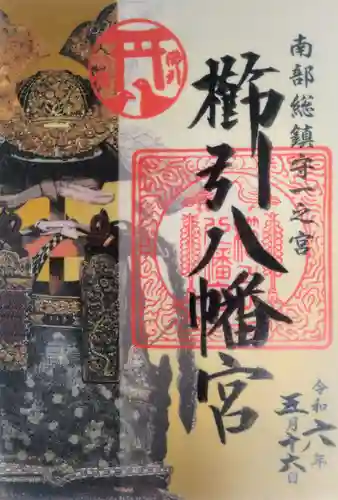 南部総鎮守一之宮
櫛引八幡宮
令和六年
五月十六日